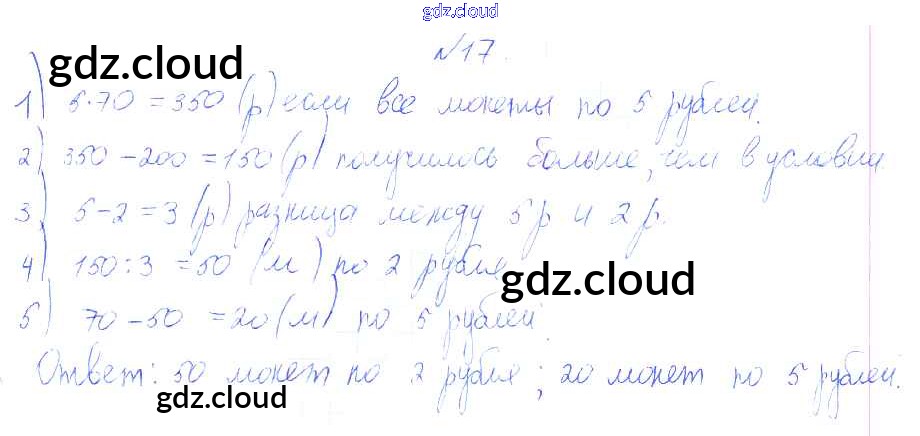 gdz.cloud
№17.
gdz.cloud
1) 5·70 = 350 (р) если все монеты по 5 рублей.
2) 350 - 200 = 150 (р) получилось больше, чем в условии
3) 5 - 2 = 3 (р) разница между 5 р и 2 р.
4) 150 : 3 = 50 (м) по 2 рубля
gdz.cloud
5) 70 - 50 = 20 (м) по 5 рублей.
Ответ: 50 монет по 2 рубля; 20 монет по 5 рублей.
gdz.cloud